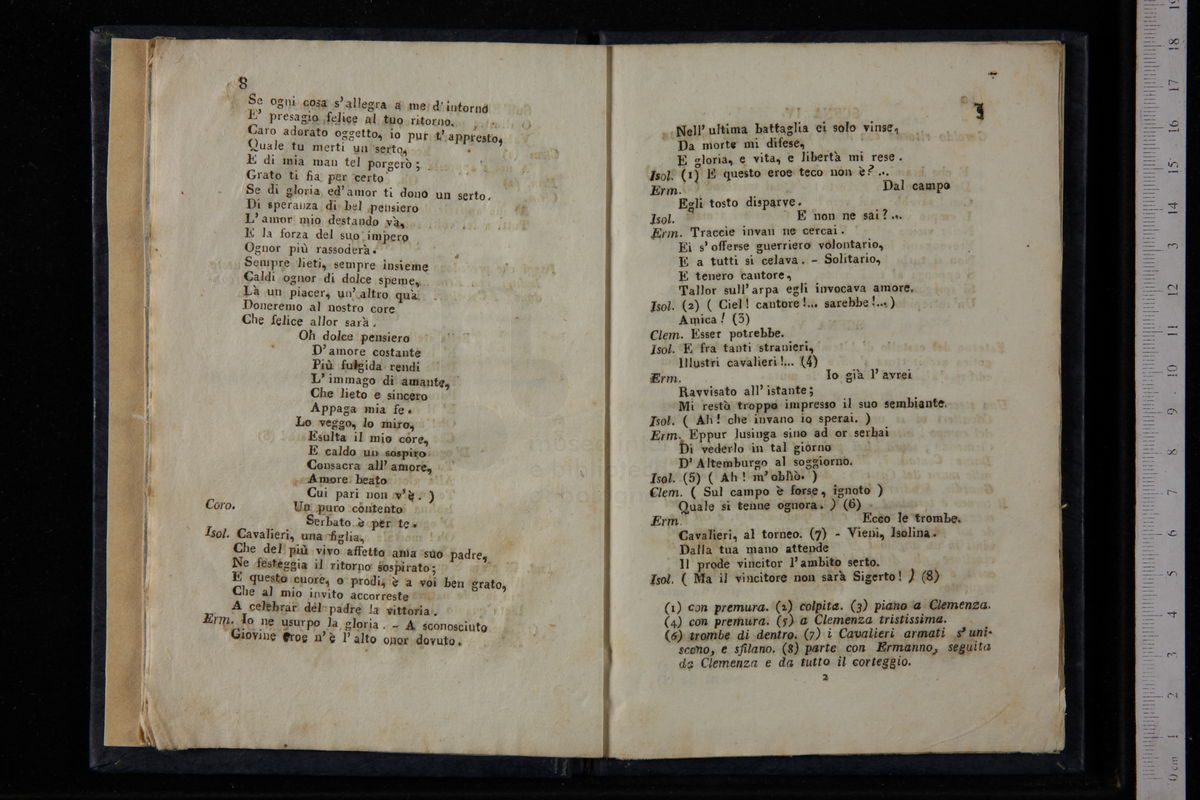 8
Se ogni cosa s'allegra a me d'intorno
E' presagio felice al tuo ritorno.
Caro adorato oggetto, io pur t'appresto,
Quale tu merti un serto,
E di mia man tel porgerò;
Grato ti fia per certo
Se di gloria ed'amor ti dono un serto.
Di speranza di bel pensiero
L'amor mio destando và,
E la forza del suo impero
Ognor più rassoderà.
Sempre lieti, sempre insieme
Caldi ognor di dolce speme,
Là un piacer, un'altro quà
Doneremo al nostro core
Che felice allor sarà.
Oh dolce pensiero
D'amore costante
Più fulgida rendi
L'immago di amante,
Che lieto e sincero
Appaga mia fe.
Lo veggo, lo miro,
Esulta il mio core,
E caldo un sospiro
Consacra all'amore,
Amore beato
Cui pari non v'è. )
Coro. Un puro contento
Serbato è per te.
Isol. Cavalieri, una figlia,
Che del più vivo affetto ama suo padre,
Ne festeggia il ritorno sospirato;
E questo cuore, o prodi, è a voi ben grato,
Che al mio invito accorreste
A celebrar del padre la vittoria.
Erm. Io ne usurpo la gloria. - A sconosciuto
Giovine eroe n'è l'alto onor dovuto.
Nell'ultima battaglia ei solo vinse,
Da morte mi difese,
E gloria, e vita, e libertà mi rese.
Isol. (1) E questo eroe teco non è?...
Erm. Dal campo
Egli tosto disparve.
Isol. E non ne sai?...
Erm. Traccie invan ne cercai.
Ei s'offerse guerriero volontario,
E a tutti si celava. - Solitario,
E tenero cantore,
Tallor sull'arpa egli invocava amore.
Isol. (2) ( Ciel! cantore!... sarebbe!...)
Amica! (3)
Clem. Esser potrebbe.
Isol. E fra tanti stranieri,
Illustri cavalieri!... (4)
Erm. Io già l'avrei
Ravvisato all'istante;
Mi restò troppo impresso il suo sembiante.
Isol. ( Ah! che invano io sperai. )
Erm. Eppur lusinga sino ad or serbai
Di vederlo in tal giorno
D'Altemburgo al soggiorno.
Isol. (5) ( Ah! m'obliò. )
Clem. ( Sul campo è forse, ignoto )
Quale si tenne ognora. ) (6)
Erm. Ecco le trombe.
Cavalieri, al torneo. (7) - Vieni, Isolina.
Dalla tua mano attende
Il prode vincitor l'ambito serto.
Isol. ( Ma il vincitore non sarà Sigerto! ) (8)
(1) con premura. (2) colpita. (3) piano a Clemenza.
(4) con premura. (5) a Clemenza tristissima.
(6) trombe di dentro. (7) i Cavalieri armati s'uni-
scono, e sfilano. (8) parte con Ermanno, seguita
da Clemenza e da tutto il corteggio.
2